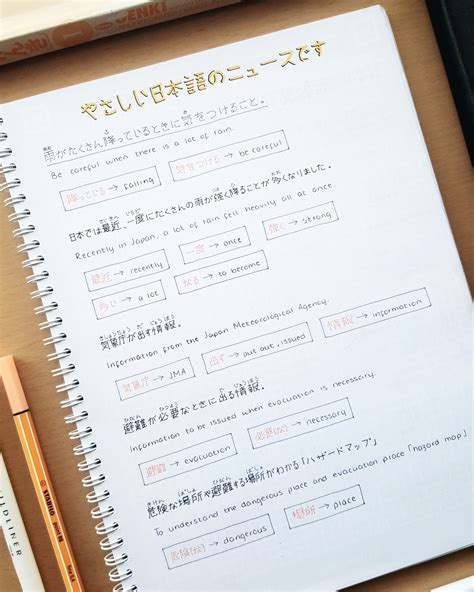 GENKI
やさしい日本語のニュースです
雨がたくさん降っているときに気をつけること。
Be careful when there is a lot of rain.
降っている → falling
気をつける → be careful
日本では最近、一度にたくさんの雨が強く降ることが多くなりました。
Recently in Japan, a lot of rain fell heavily all at once.
最近 → recently
一度 → once
強く → strong
多い → a lot
なる → to become
気象庁が出す情報。
Information from the Japan Meteorological Agency.
気象庁 → JMA
出す → put out, issued
情報 → information
避難が必要なときに出る情報。
Information to be issued when evacuation is necessary.
避難 → evacuation
必要(な) → necessary
危険な場所や避難する場所がわかる「ハザードマップ」
To understand the dangerous place and evacuation place「hazard map」
危険(な) → dangerous
場所 → place
STABILO